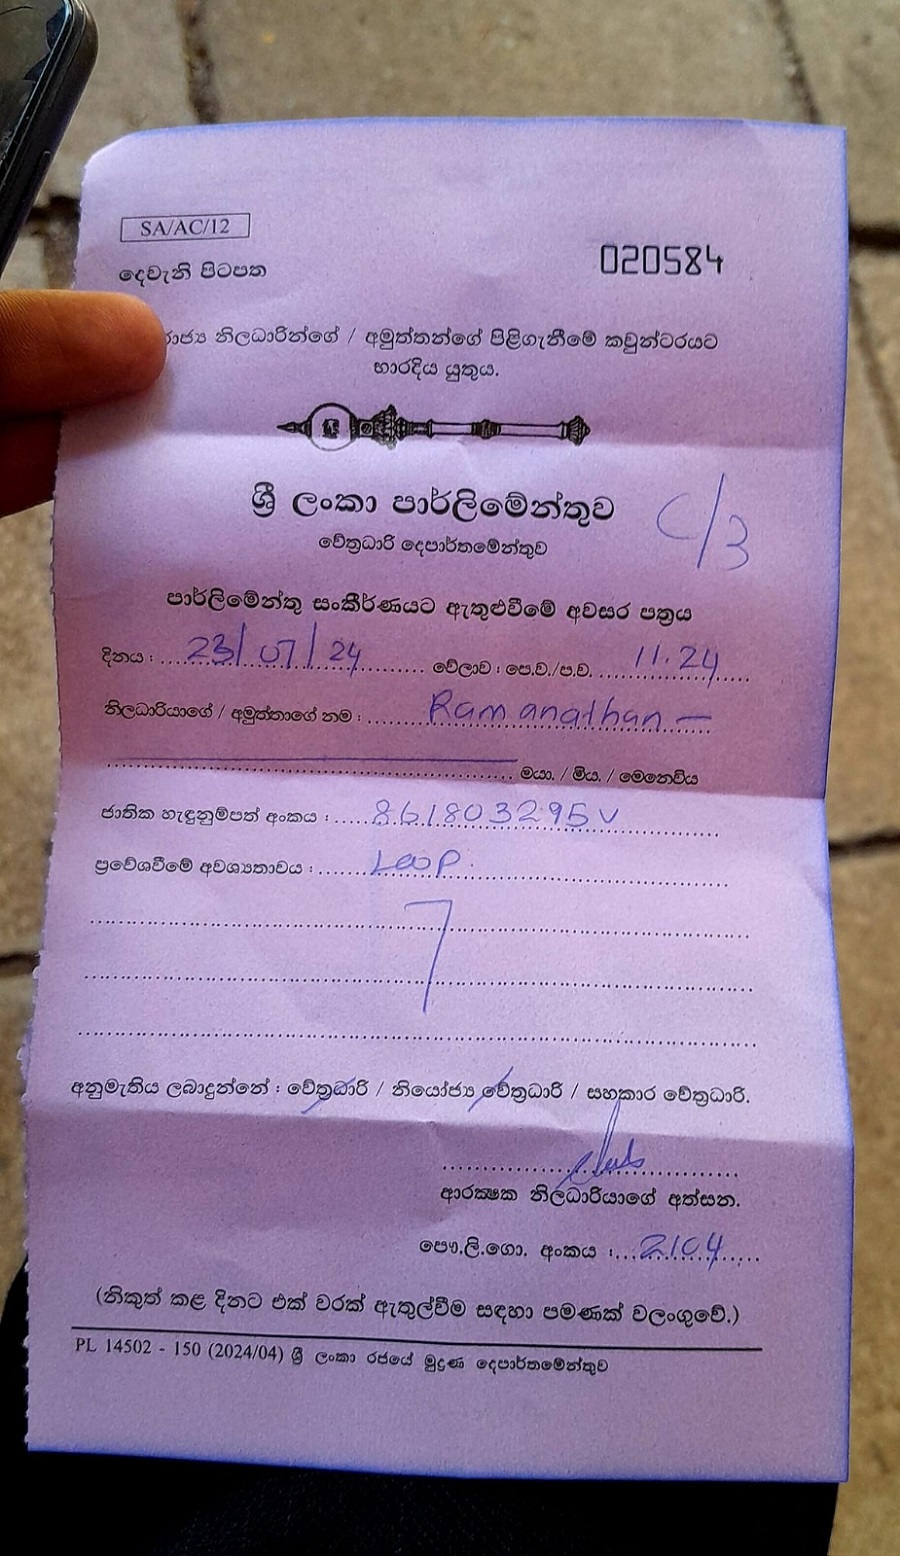 SA/AC/12
020584
දෙවැනි පිටපත
රාජ්‍ය නිලධාරින්ගේ / අමුත්තන්ගේ පිළිගැනීමේ කවුන්ටරයට
භාරදිය යුතුය.
ශ්‍රී ලංකා පාර්ලිමේන්තුව
C/3
වේත්‍රධාරි දෙපාර්තමේන්තුව
පාර්ලිමේන්තු සංකීර්ණයට ඇතුළුවීමේ අවසර පත්‍රය
දිනය : 23/07/24 වේලාව : පෙ.ව./ප.ව. 11.24
නිලධාරියාගේ / අමුත්තාගේ නම : Ramanathan —
මයා. / මිය. / මෙනෙවිය
ජාතික හැඳුනුම්පත් අංකය : 861803295V
ප්‍රවේශවීමේ අවශ්‍යතාවය :
අනුමැතිය ලබාදුන්නේ : වේත්‍රධාරි / නියෝජ්‍ය වේත්‍රධාරි / සහකාර වේත්‍රධාරි.
ආරක්ෂක නිලධාරියාගේ අත්සන.
පෞ.ලි.ගො. අංකය : 2104
(නිකුත් කළ දිනට එක් වරක් ඇතුල්වීම සඳහා පමණක් වලංගුවේ.)
PL 14502 - 150 (2024/04) ශ්‍රී ලංකා රජයේ මුද්‍රණ දෙපාර්තමේන්තුව